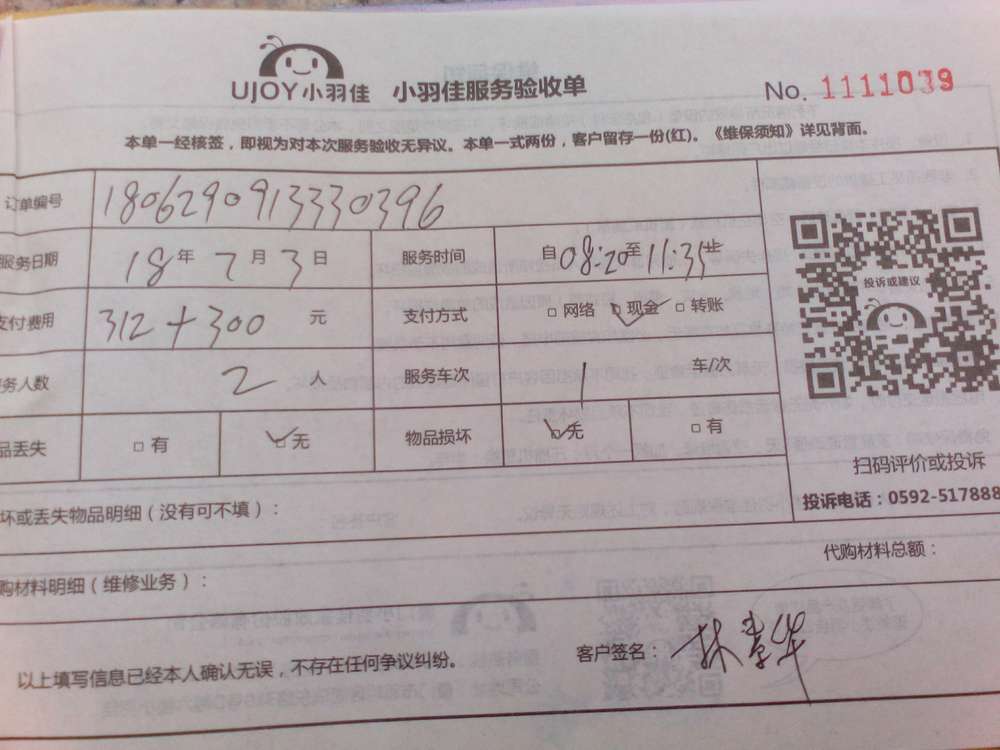 UJOY小羽佳 小羽佳服务验收单 No. 1111039
本单一经核签，即视为对本次服务验收无异议。本单一式两份，客户留存一份(红)。《维保须知》详见背面。
订单编号 180629091333０396
服务日期 18年7月3日 服务时间 自08:20至11:35止
支付费用 312+300元 支付方式 □网络 ☑现金 □转账
务人数 2 服务车次 1 车/次
品丢失 □有 ☑无 物品损坏 ☑无 □有
投诉或建议
扫码评价或投诉
投诉电话：0592-517888
坏或丢失物品明细（没有可不填）：
代购材料总额：
购材料明细（维修业务）：
以上填写信息已经本人确认无误，不存在任何争议纠纷。 客户签名：